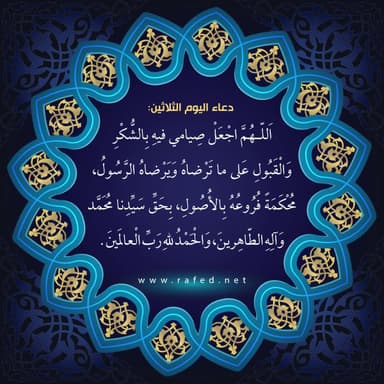 دعاء اليوم الثلاثين:
اَللّـهُمَّ اجْعَلْ صِيامي فيهِ بِالشُّكْرِ
وَالْقَبُولِ عَلى ما تَرْضاهُ وَيَرْضاهُ الرَّسُولُ،
مُحْكَمَةً فُرُوعُهُ بِالأُصُولِ، بِحَقِّ سَيِّدِنا مُحَمَّد
وَآلِهِ الطّاهِرينَ، وَالْحَمْدُ للهِ رَبِّ الْعالَمينَ.
www.rafed.net